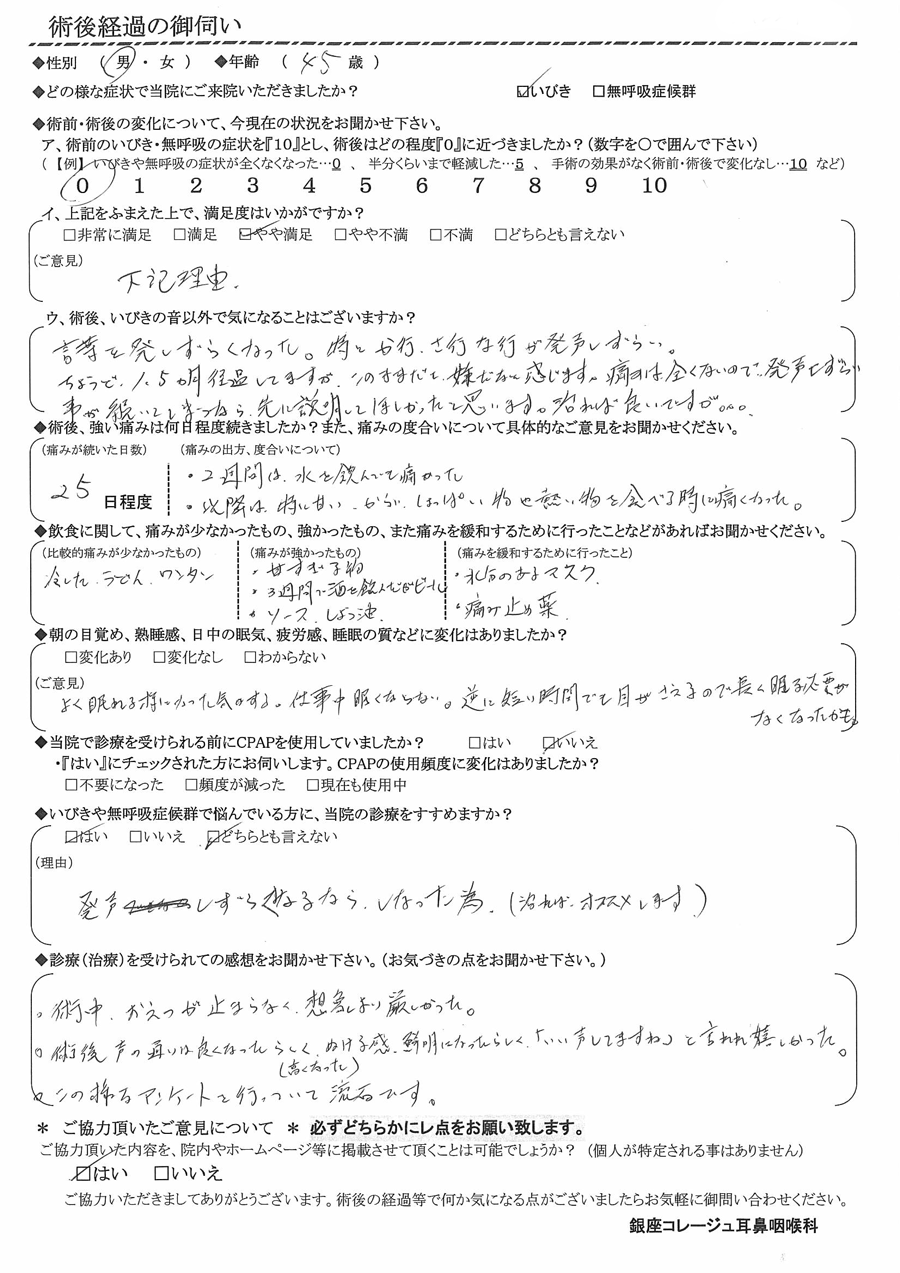 術後経過の御伺い
◆性別 （ 男 ・ 女 ） ◆年齢 （ 45 歳 ）
◆どの様な症状で当院にご来院いただきましたか？ ☑いびき □無呼吸症候群
◆術前・術後の変化について、今現在の状況をお聞かせ下さい。
ア、術前のいびき・無呼吸の症状を『10』とし、術後はどの程度『0』に近づきましたか？（数字を〇で囲んで下さい）
（【例】いびきや無呼吸の症状が全くなくなった…0 、 半分くらいまで軽減した…5 、 手術の効果がなく術前・術後で変化なし…10 など）
0 1 2 3 4 5 6 7 8 9 10
イ、上記をふまえた上で、満足度はいかがですか？
□非常に満足 □満足 ☑やや満足 □やや不満 □不満 □どちらとも言えない
（ご意見）
下記理由.
ウ、術後、いびきの音以外で気になることはございますか？
言葉を発しずらくなった。特にか行、さ行な行が発声しずらい。
ちょうど、1.5ヵ月経過してますが、このままだと嫌だなと感じます。痛みは全くないので、発声しずらい
事が続いてしまうなら、先に説明してほしかったと思います。治れば良いですが…。
◆術後、強い痛みは何日程度続きましたか？また、痛みの度合いについて具体的なご意見をお聞かせください。
（痛みが続いた日数） （痛みの出方、度合いについて）
25 日程度
・2週間は、水を飲んでも痛かった
・以降は、特に甘い、からい、しょっぱい物や熱い物を食べる時に痛くなった。
◆飲食に関して、痛みが少なかったもの、強かったもの、また痛みを緩和するために行ったことなどがあればお聞かせください。
（比較的痛みが少なかったもの） （痛みが強かったもの） （痛みを緩和するために行ったこと）
冷した、うどん、ワンタン
・甘すぎる物
・3週間で酒を飲んだがビール
・ソース、しょう油.
・水分のあるマスク.
・痛み止め薬.
◆朝の目覚め、熟睡感、日中の眠気、疲労感、睡眠の質などに変化はありましたか？
□変化あり □変化なし □わからない
（ご意見）
よく眠れる様になった気がする。仕事中眠くならない。逆に短い時間でも目がさえるので長く眠る必要が
なくなったかも。
◆当院で診療を受けられる前にCPAPを使用していましたか？ □はい ☑いいえ
・『はい』にチェックされた方にお伺いします。CPAPの使用頻度に変化はありましたか？
□不要になった □頻度が減った □現在も使用中
◆いびきや無呼吸症候群で悩んでいる方に、当院の診療をすすめますか？
☑はい □いいえ ☑どちらとも言えない
（理由）
発声しずらくなるなら、しなった為.（治れば、オススメします）
◆診療（治療）を受けられての感想をお聞かせ下さい。（お気づきの点をお聞かせ下さい。）
。術中、おえつが止まらなく、想像より厳しかった。
。術後 声の通りは良くなったらしく、ぬける感、鮮明になったらしく、「いい声してますね」と言われ嬉しかった。
（高くなった）
。この様なアンケートを行っていて流石です。
＊ ご協力頂いたご意見について ＊ 必ずどちらかにレ点をお願い致します。
ご協力頂いた内容を、院内やホームページ等に掲載させて頂くことは可能でしょうか？ （個人が特定される事はありません）
☑はい □いいえ
ご協力いただきましてありがとうございます。術後の経過等で何か気になる点がございましたらお気軽に御問い合わせください。
銀座コレージュ耳鼻咽喉科